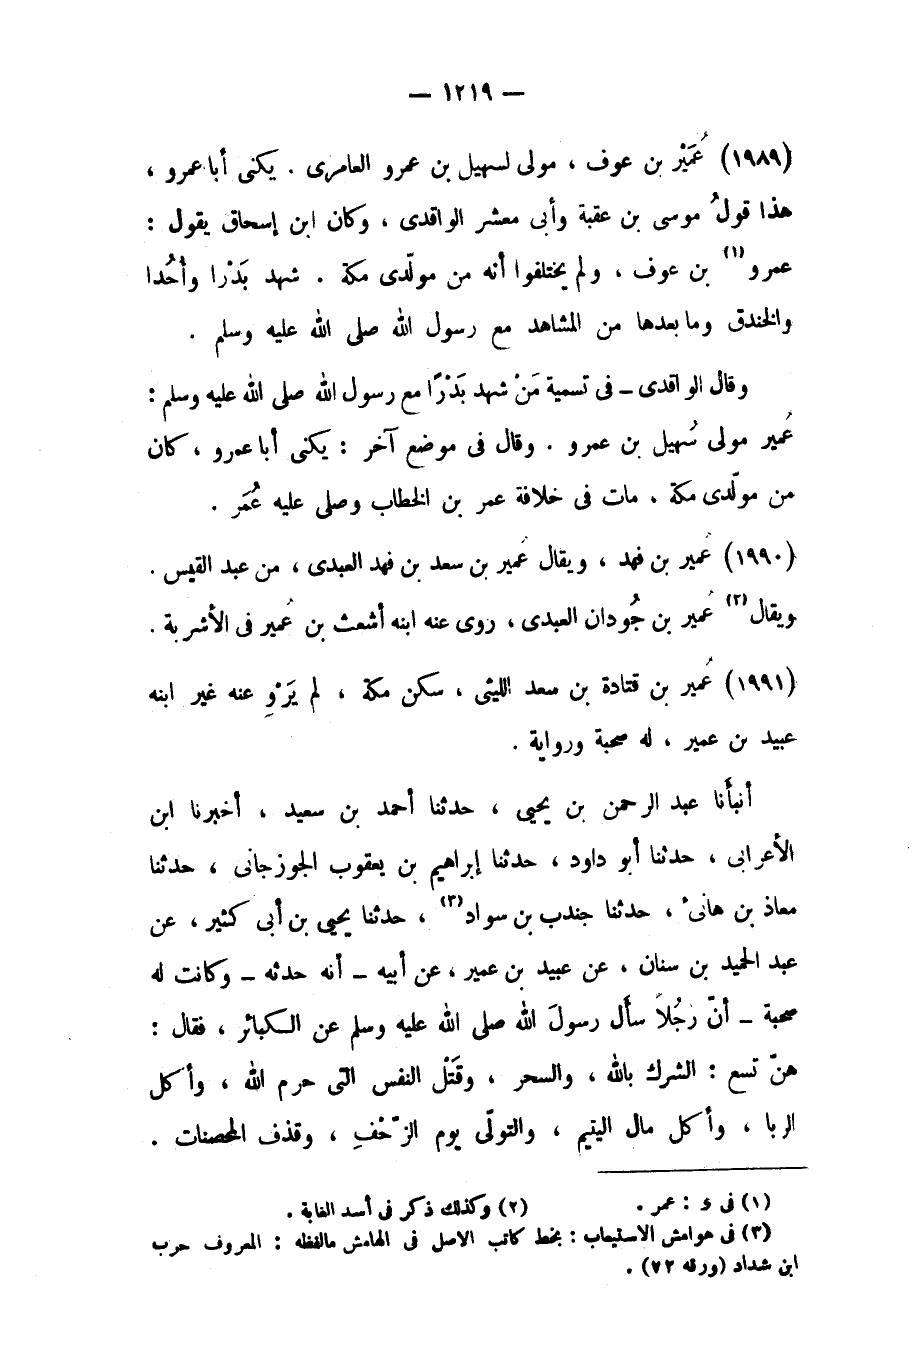 — ١٢١٩ —
(١٩٨٩) عُمَيْر بن عوف ، مولى لسهيل بن عمرو العامرى . يكنى أبا عمرو ،
هذا قولُ موسى بن عقبة وأبى معشر الواقدى ، وكان ابن إسحاق يقول :
عمرو (١) بن عوف ، ولم يختلفوا أنه من مولّدى مكة . شهد بَدْرا وأُحُدا
والخندق وما بعدها من المشاهد مع رسول الله صلى الله عليه وسلم .
وقال الواقدى ــ فى تسمية مَنْ شهد بَدْرًا مع رسول الله صلى الله عليه وسلم :
عُمير مولى سُهيل بن عمرو . وقال فى موضع آخر : يكنى أبا عمرو ، كان
من مولّدى مكة ، مات فى خلافة عمر بن الخطاب وصلى عليه عُمَر .
(١٩٩٠) عُمير بن فهد ، ويقال عُمير بن سعد بن فهد العبدى ، من عبد القيس .
ويقال (٢) عُمير بن جُودان العبدى ، روى عنه ابنه أشعث بن عُمير فى الأشربة .
(١٩٩١) عُمير بن قتادة بن سعد الليثى ، سكن مكة ، لم يَرْوِ عنه غير ابنه
عبيد بن عمير ، له صحبة ورواية .
أنبأَنا عبد الرحمن بن يحيى ، حدثنا أحمد بن سعيد ، أخبرنا ابن
الأعرابى ، حدثنا أبو داود ، حدثنا إبراهيم بن يعقوب الجوزجانى ، حدثنا
معاذ بن هانىء ، حدثنا جندب بن سواد (٣) ، حدثنا يحيى بن أبى كثير ، عن
عبد الحميد بن سنان ، عن عبيد بن عمير ، عن أبيه ــ أنه حدثه ــ وكانت له
صحبة ــ أنّ رجُلاً سأَل رسولَ الله صلى الله عليه وسلم عن الكبائر ، فقال :
هنّ تسع : الشرك بالله ، والسحر ، وقَتْل النفس التى حرم الله ، وأكل
الربا ، وأكل مال اليتيم ، والتولّى يوم الزّحْفِ ، وقذف المحصنات .
(١) فى ء : عمر . (٢) وكذلك ذكر فى أسد الغابة .
(٣) فى هوامش الاستيعاب : بخط كاتب الاصل فى الهامش مالفظه : المعروف حرب
ابن شداد (ورقه ٧٢) .